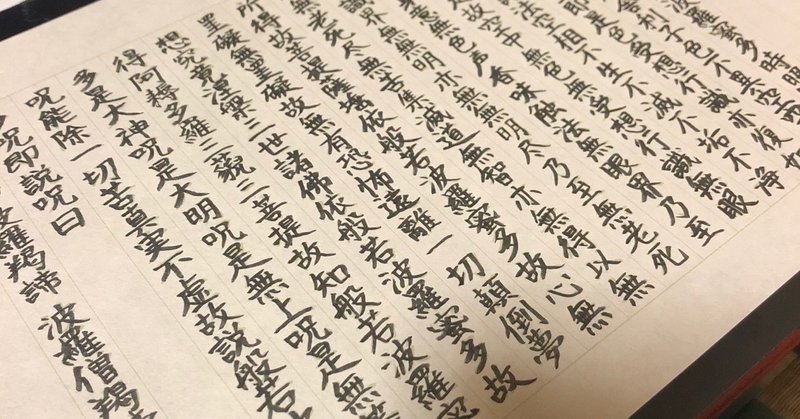 波羅蜜多時照
舎利子色不異空空
即是色受想行識亦復如
法空相不生不滅不垢不浄
故空中無色無受想行識無眼
意無色声香味触法無眼界乃至
識界無無明亦無無明尽乃至無老死
無老死尽無苦集滅道無智亦無得以無
所得故菩提薩埵依般若波羅蜜多故心無
罣礙無罣礙故無有恐怖遠離一切顛倒夢
想究竟涅槃三世諸佛依般若波羅蜜多故
得阿耨多羅三藐三菩提故知般若波羅蜜
多是大神呪是大明呪是無上呪是無等
呪能除一切苦真実不虚故説般若
多呪即説呪曰
波羅羯諦 波羅僧羯